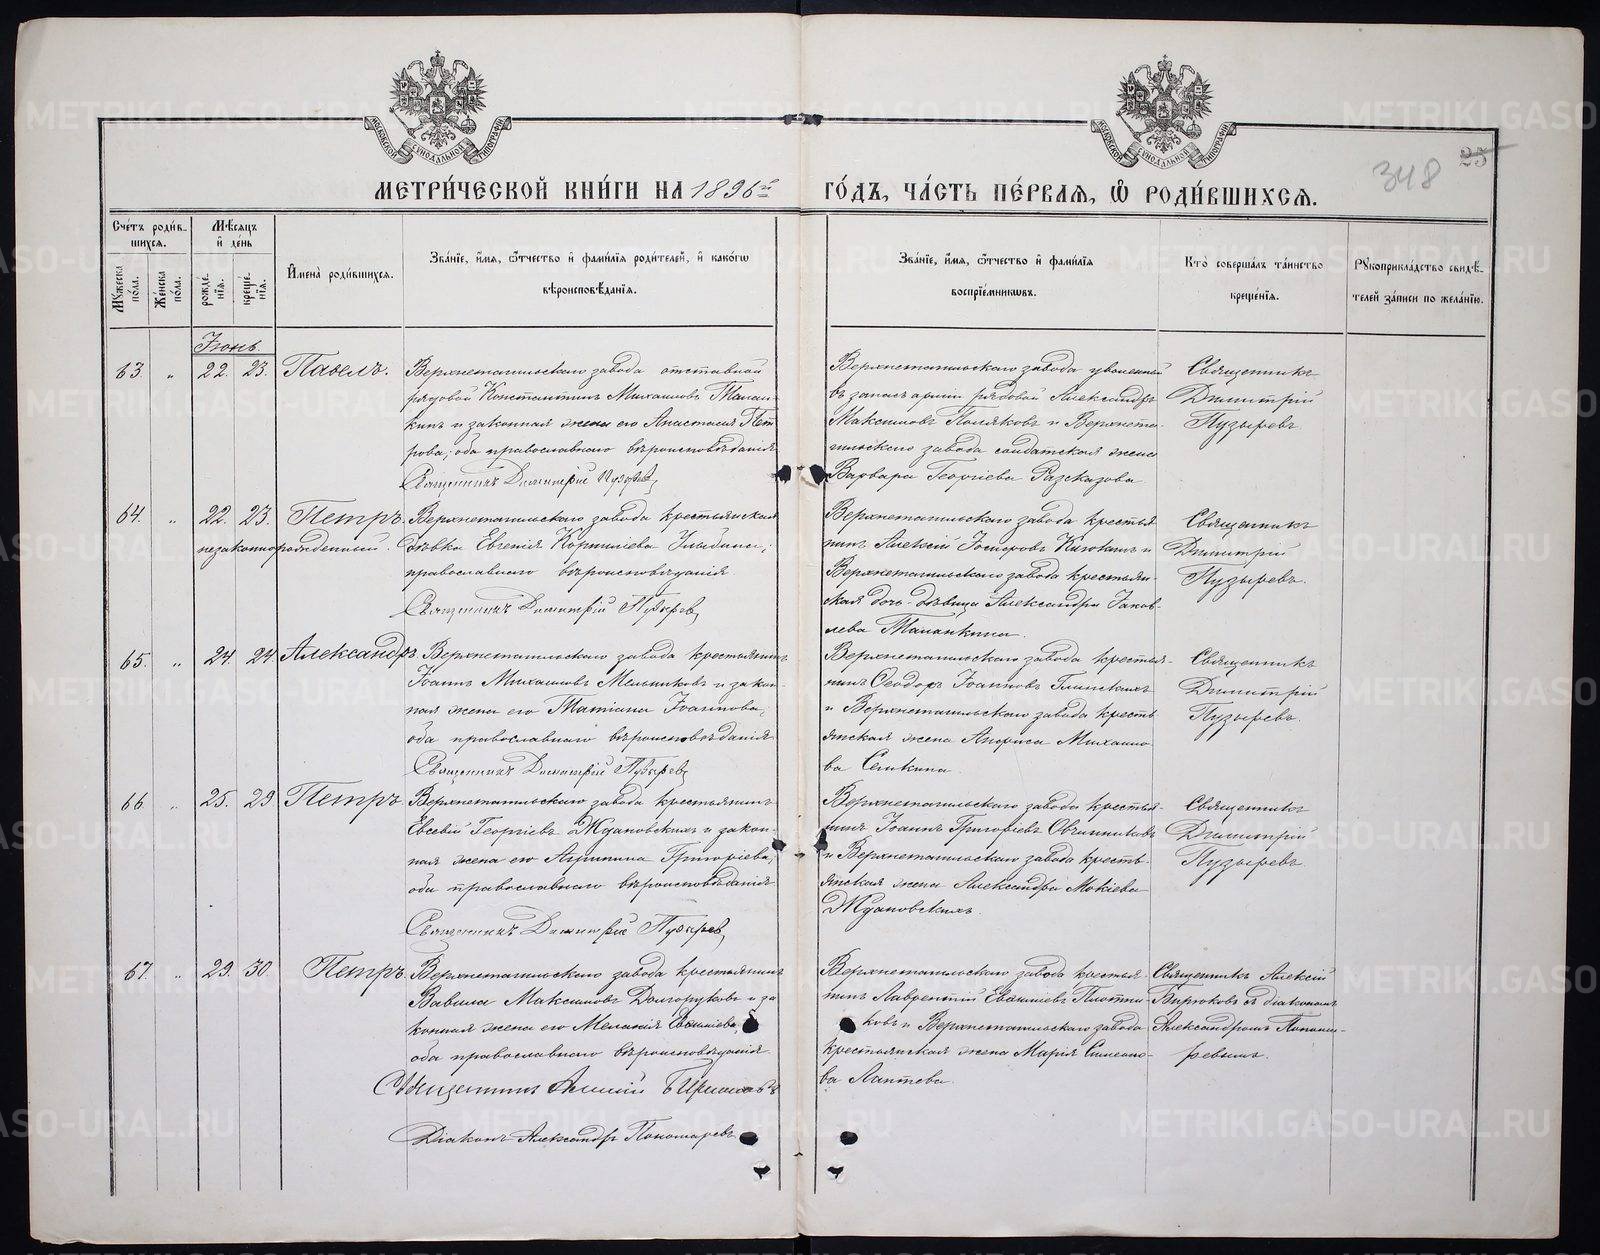 МЕТРИ́ЧЕСКОЙ КНИ́ГИ НА 1896й ГО́ДЪ, ЧА́СТЬ ПЕ́РВАЯ, Ѡ РОДИ́ВШИХСЯ.
348
25
МОСКОВСКОЙ СѴНОДАЛЬНОЙ ТИПОГРАФІИ
МОСКОВСКОЙ СѴНОДАЛЬНОЙ ТИПОГРАФІИ
Сче́тъ роди́в-
шихся.
Му́жеска по́ла.
Же́нска по́ла.
Мѣ́сяцъ
и҆ де́нь
рожде́-
нїя.
креще́-
нїя.
И҆мена̀ роди́вшихся.
Зва́нїе, и҆́мя, ѻ҆́тчество и҆ фами́лїя роди́телей, и҆ како́гѡ
вѣроисповѣ́данїя.
Зва́нїе, и҆́мя, ѻ҆́тчество и҆ фами́лїя
воспрїе́мниковъ.
Кто̀ соверша́лъ та́инство
креще́нїя.
Рꙋкоприкла́дство свидѣ́-
телей за́писи по жела́нїю.
Іюнь.
63. „ 22. 23. Павелъ.
Верхнетагильскаго завода отставной
рядовой Константинъ Михаиловъ Талан-
кинъ и законная жена его Анастасія Пет
рова; оба православнаго вѣроисповѣданія
Священникъ Димитрій Пузыревъ
Верхнетагильскаго завода уволенный
въ запасъ арміи рядовой Александръ
Максимовъ Поляковъ и Верхнета-
гильскаго завода солдатская жена
Варвара Георгіева Разсказова
Священникъ
Димитрій
Пузыревъ
64. „ 22. 23. Петръ.
незаконнорожденный.
Верхнетагильскаго завода крестьянская
дѣвка Евгенія Корнилїева
православнаго вѣроисповѣданія
Священникъ Димитрій Пузыревъ
Верхнетагильскаго завода крестья
нинъ Алексій и
Верхнетагильскаго завода крестьян-
ская дочь-дѣвица Александра Іаков-
лева Таланкина.
Священникъ
Димитрій
Пузыревъ.
65. „ 24. 24. Александръ.
Верхнетагильскаго завода крестьянинъ
Іоаннъ Михаиловъ Мельниковъ и закон-
ная жена его Татіана Іоаннова,
оба православнаго вѣроисповѣданія
Священникъ Димитрій Пузыревъ
Верхнетагильскаго завода крестья-
нинъ Ѳеодоръ Іоанновъ Глинскихъ
и Верхнетагильскаго завода кресть
янская жена Анфиса Михаило-
ва Семкина.
Священникъ
Димитрій
Пузыревъ.
66. „ 25. 29 Петръ
Верхнетагильскаго завода крестьянинъ
Евсевій Георгіевъ Ждановскихъ и закон-
ная жена его Агрипина Григоріева,
оба православнаго вѣроисповѣданія
Священникъ Димитрій Пузыревъ
Верхнетагильскаго завода крестья-
нинъ Іоаннъ Григоріевъ Овчинниковъ
и Верхнетагильскаго завода кресть-
янская жена Александра Мокіева
Ждановскихъ.
Священникъ
Димитрій
Пузыревъ
67. „ 29. 30. Петръ
Верхнетагильскаго завода крестьянинъ
Вавила Максимовъ Долгоруковъ и за
конная жена его Меланія
оба православнаго вѣроисповѣданія.
Священникъ Алексій Бирюковъ
Діаконъ Александръ Пономаревъ
Верхнетагильскаго завода крестья
нинъ Лаврентій Плотни-
ковъ и Верхнетагильскаго завода
крестьянская жена Марія Симеоно-
ва Лаптева.
Священникъ Алексій
Бирюковъ съ діакономъ
Александромъ Понома-
ревымъ.
METRIKI.GASO-URAL.RU